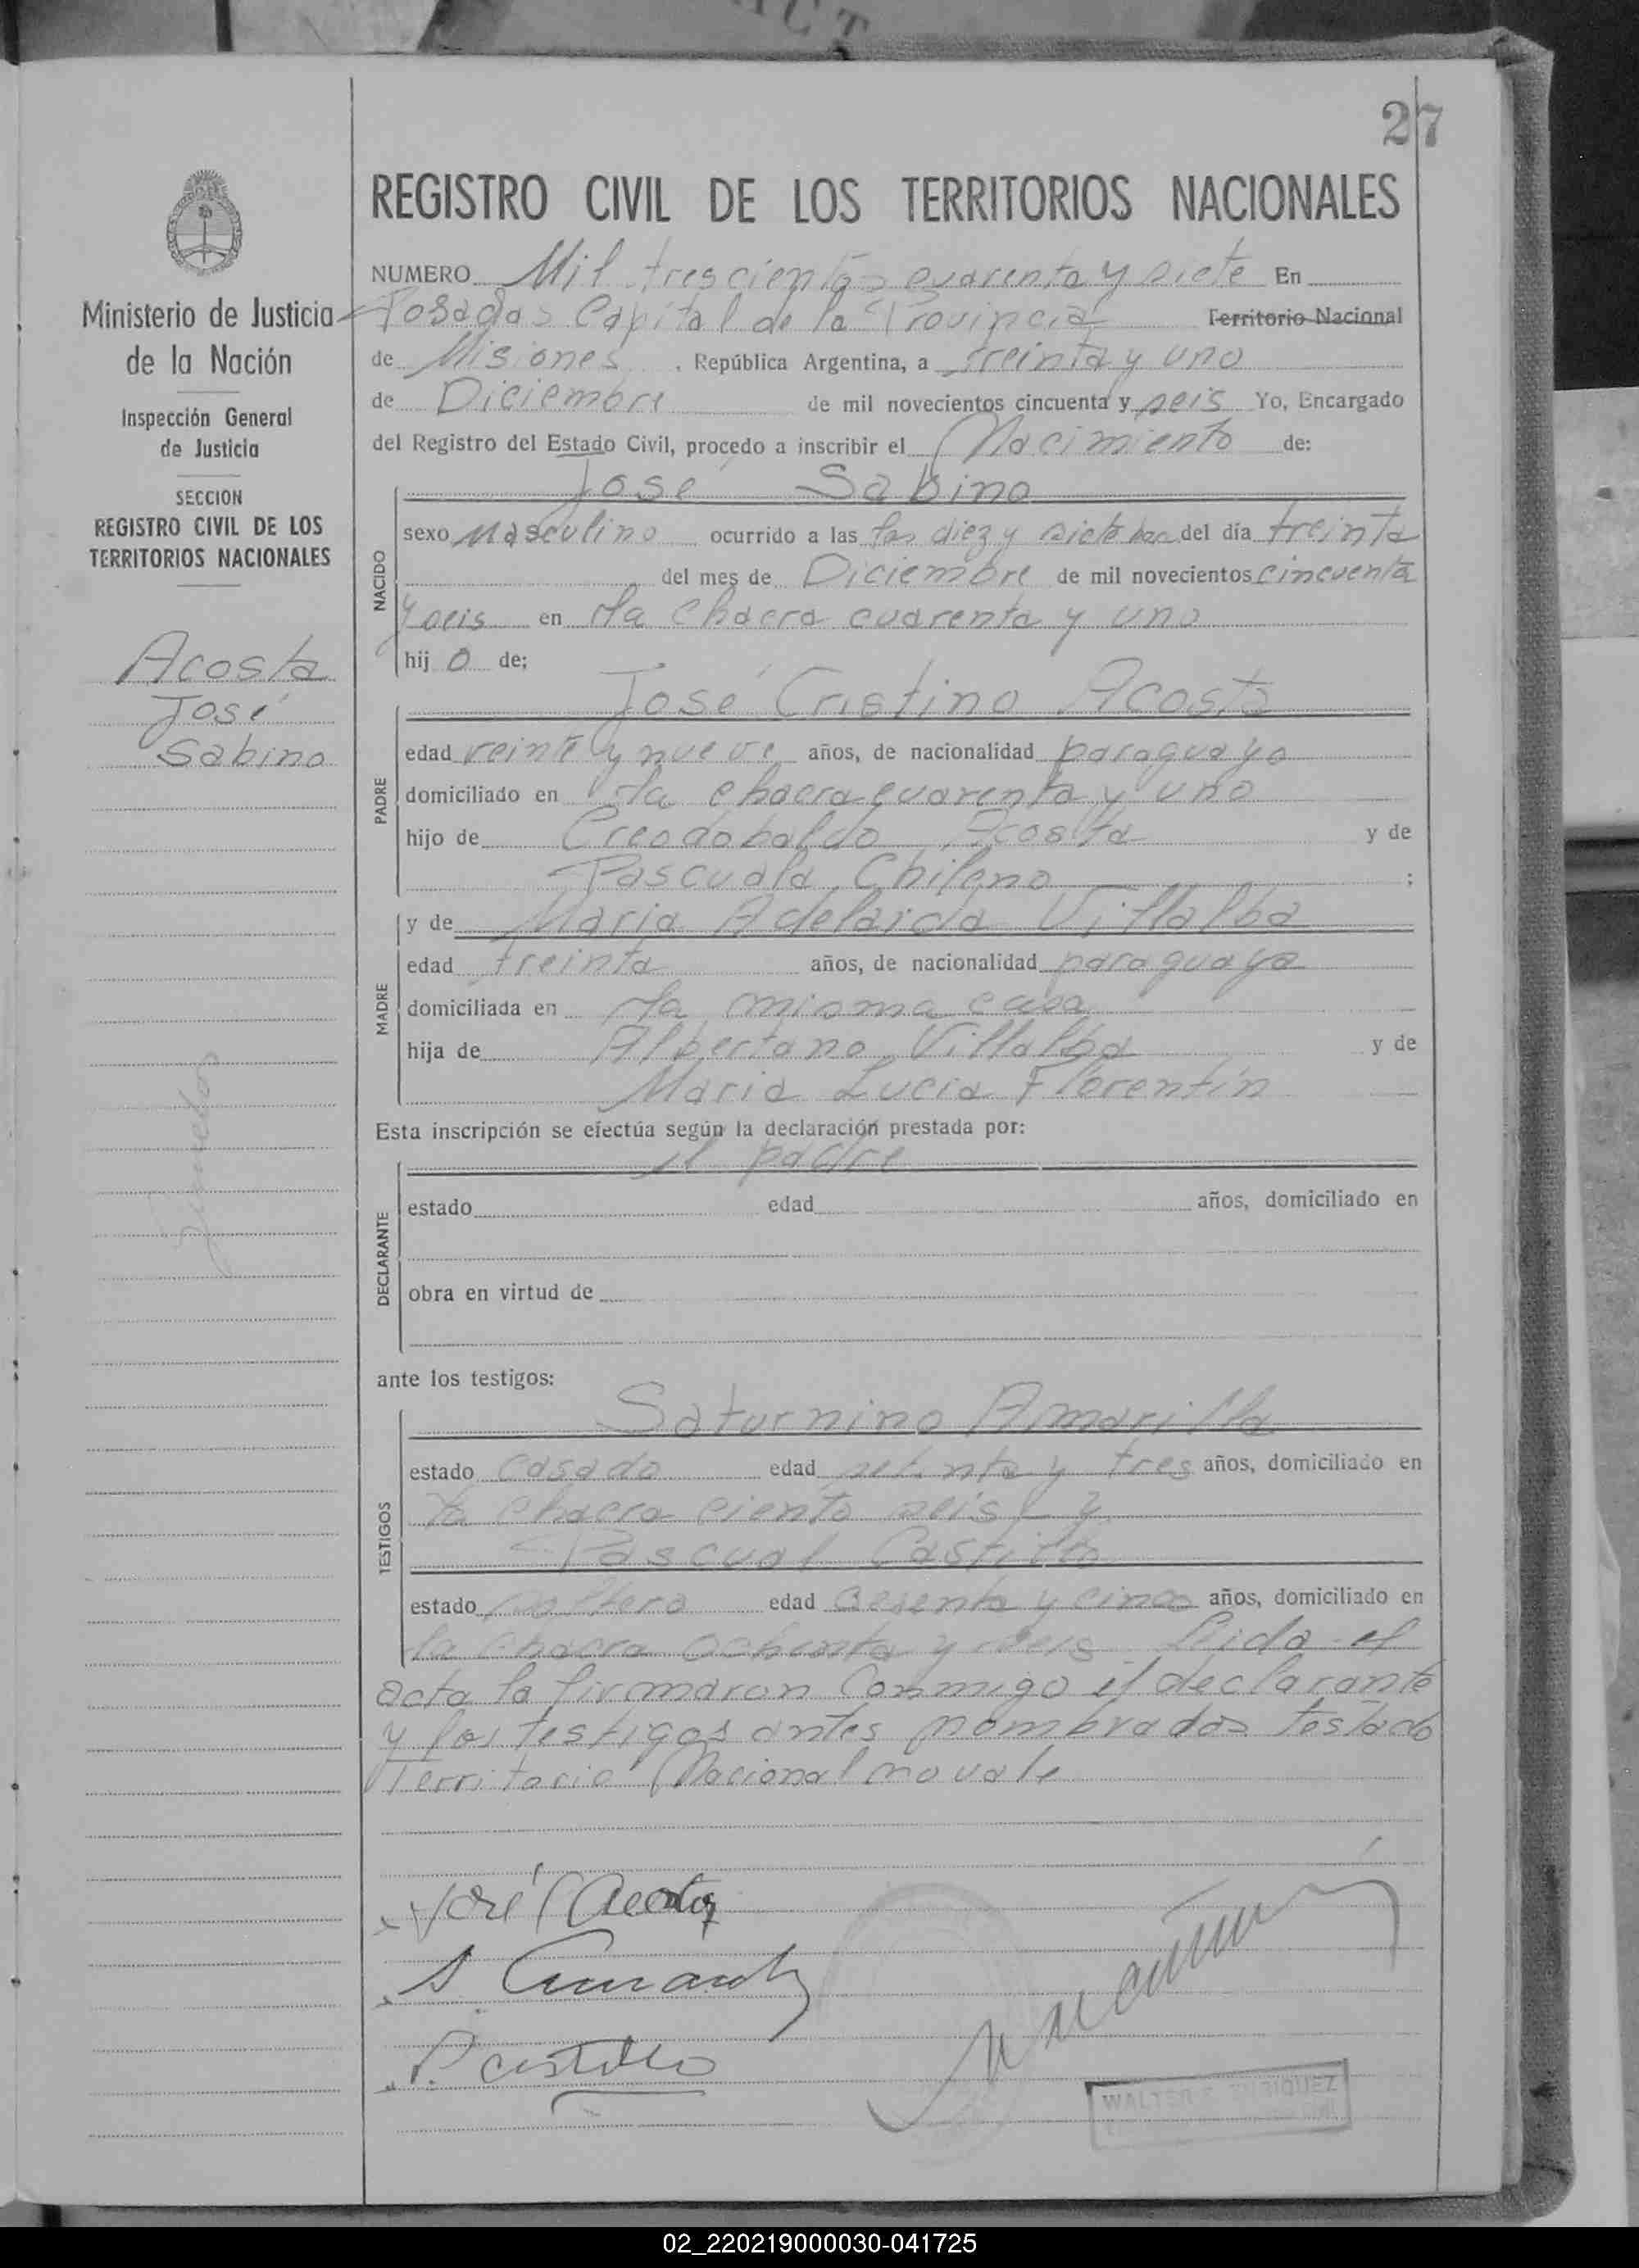 27
REGISTRO CIVIL DE LOS TERRITORIOS NACIONALES
Ministerio de Justicia
de la Nación
Inspección General
de Justicia
SECCION
REGISTRO CIVIL DE LOS
TERRITORIOS NACIONALES
Acosta
José
Sabino
NUMERO Mil trescientos cuarenta y siete En
Posadas Capital de la Provincia Territorio Nacional
de Misiones , República Argentina, a treinta y uno
de Diciembre de mil novecientos cincuenta y seis Yo, Encargado
del Registro del Estado Civil, procedo a inscribir el Nacimiento de:
José Sabino
NACIDO
sexo Masculino ocurrido a las las diez y siete hras del día treinta
del mes de Diciembre de mil novecientos cincuenta
y seis en la chacra cuarenta y uno
hij o de;
José Cristino Acosta
PADRE
edad veinte y nueve años, de nacionalidad paraguayo
domiciliado en la chacra cuarenta y uno
hijo de Creodobaldo Acosta y de
Pascuala Chileno ;
MADRE
y de Maria Adelaida Villalba
edad treinta años, de nacionalidad paraguaya
domiciliada en la misma casa
hija de Albertano Villalba y de
Maria Lucia Florentín
Esta inscripción se efectúa según la declaración prestada por:
el padre
DECLARANTE
estado edad años, domiciliado en
obra en virtud de
ante los testigos:
TESTIGOS
Saturnino Amarilla
estado casado edad setenta y tres años, domiciliado en
la chacra ciento seis y
Pascual Castillo
estado soltero edad sesenta y cinco años, domiciliado en
la chacra ochenta y seis Leida el
acta la firmaron conmigo el declarante
y los testigos antes nombrados testado
Territorio Nacional no vale
José Acosta
S. Amarilla
P. Castillo
WALTER
02_220219000030-041725